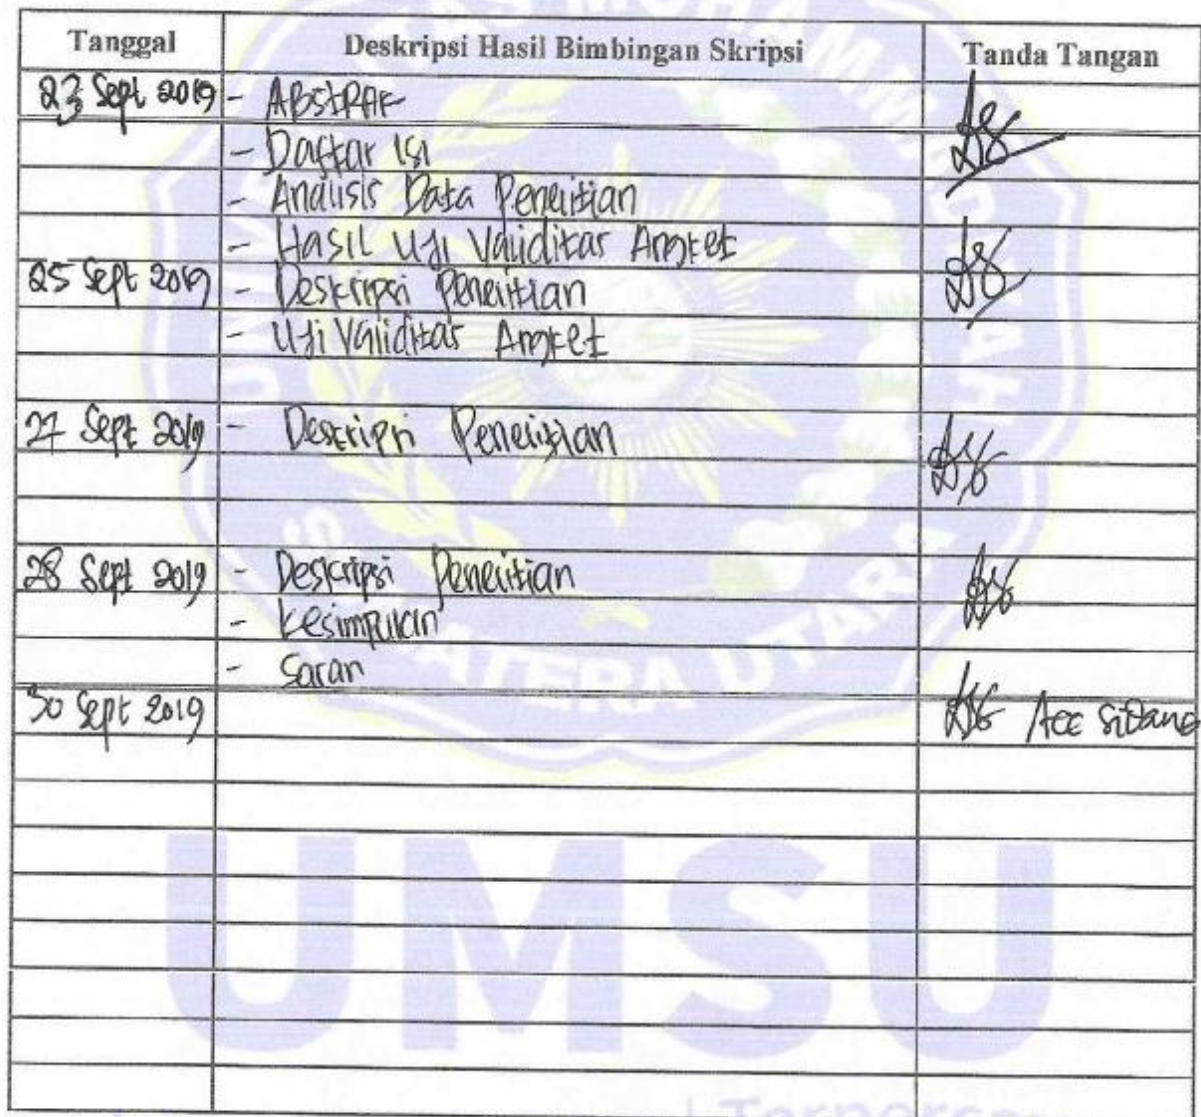 Tanggal Deskripsi Hasil Bimbingan Skripsi Tanda Tangan
23 Sept 2019 - ABSTRAK
- Daftar Isi
- Analisis Data Penelitian
- Hasil Uji Validitas Angket
25 Sept 2019 - Deskripsi Penelitian
- Uji Validitas Angket
27 Sept 2019 - Deskripsi Penelitian
28 Sept 2019 - Deskripsi Penelitian
- Kesimpulan
- Saran
30 Sept 2019 Acc Sidang
UMSU